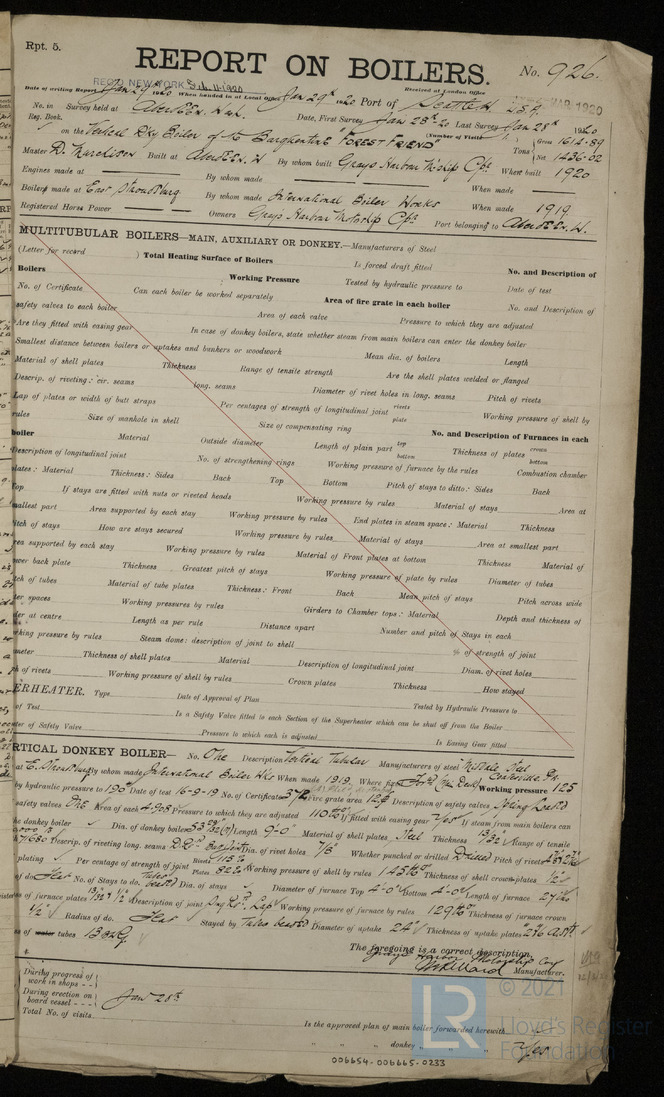 Rpt. 5.
REPORT ON BOILERS.
No. 926.
REC'D NEW YORK Feb. 11-1920
Date of writing Report Jan 29 1920 When handed in at Local Office Jan 29th 1920 Port of Seattle
Received at London Office MAR 1920
No. in Survey held at Aberdeen Wn. Date, First Survey Jan 28th 20 Last Survey Jan 28th 1920
Reg. Book. (Number of Visits
on the Vertical Dky Boiler of the Barquentine "FOREST FRIEND" Tons Gross 1614.89 Net 1436.02
Master D. Murchison Built at Aberdeen. W By whom built Grays Harbour M'ship Cpn. When built 1920
Engines made at By whom made When made
Boilers made at East Stroudsburg By whom made International Boiler Works When made 1919
Registered Horse Power Owners Grays Harbour Motorship Cpn. Port belonging to Aberdeen. W.
MULTITUBULAR BOILERS—MAIN, AUXILIARY OR DONKEY.—Manufacturers of Steel
(Letter for record ) Total Heating Surface of Boilers Is forced draft fitted No. and Description of
Boilers Working Pressure Tested by hydraulic pressure to Date of test
No. of Certificate Can each boiler be worked separately Area of fire grate in each boiler No. and Description of
safety valves to each boiler Area of each valve Pressure to which they are adjusted
Are they fitted with easing gear In case of donkey boilers, state whether steam from main boilers can enter the donkey boiler
Smallest distance between boilers or uptakes and bunkers or woodwork Mean dia. of boilers Length
Material of shell plates Thickness Range of tensile strength Are the shell plates welded or flanged
Descrip. of riveting: cir. seams long. seams Diameter of rivet holes in long. seams Pitch of rivets
Lap of plates or width of butt straps Per centages of strength of longitudinal joint rivets plate Working pressure of shell by
rules Size of manhole in shell Size of compensating ring No. and Description of Furnaces in each
boiler Material Outside diameter Length of plain part top bottom Thickness of plates crown bottom
Description of longitudinal joint No. of strengthening rings Working pressure of furnace by the rules Combustion chamber
plates: Material Thickness: Sides Back Top Bottom Pitch of stays to ditto: Sides Back
Top If stays are fitted with nuts or riveted heads Working pressure by rules Material of stays Area at
smallest part Area supported by each stay Working pressure by rules End plates in steam space: Material Thickness
Pitch of stays How are stays secured Working pressure by rules Material of stays Area at smallest part
rea supported by each stay Working pressure by rules Material of Front plates at bottom Thickness Material of
ower back plate Thickness Greatest pitch of stays Working pressure of plate by rules Diameter of tubes
tch of tubes Material of tube plates Thickness: Front Back Mean pitch of stays Pitch across wide
ter spaces Working pressures by rules Girders to Chamber tops: Material Depth and thickness of
der at centre Length as per rule Distance apart Number and pitch of Stays in each
rking pressure by rules Steam dome: description of joint to shell % of strength of joint
meter Thickness of shell plates Material Description of longitudinal joint Diam. of rivet holes
h of rivets Working pressure of shell by rules Crown plates Thickness How stayed
ERHEATER. Type Date of Approval of Plan Tested by Hydraulic Pressure to
of Test Is a Safety Valve fitted to each Section of the Superheater which can be shut off from the Boiler
ter of Safety Valve Pressure to which each is adjusted Is Easing Gear fitted
RTICAL DONKEY BOILER— No. One Description Vertical Tubular Manufacturers of steel Midvale Steel Coatesville Pa.
at E. Stroudsburg By whom made International Boiler Wks When made 1919 Where fixed Working pressure 125
by hydraulic pressure to 190 Date of test 16-9-19 No. of Certificate Fire grate area 12 Description of safety valves Spring Loaded
safety valves One Area of each 4.908 Pressure to which they are adjusted 110 If fitted with easing gear Yes If steam from main boilers can
he donkey boiler Dia. of donkey boiler Length 9-0 Material of shell plates Steel Thickness 13/32 Range of tensile
Descrip. of riveting long. seams Dia. of rivet holes 7/8 Whether punched or drilled Drilled Pitch of rivets
plating Per centage of strength of joint Rivets Plates 82 Working pressure of shell by rules 145 Thickness of shell crown plates 1/2
of do. Flat No. of Stays to do. Dia. of stays Diameter of furnace Top 4'-0" Bottom 4'-0" Length of furnace 27 ins
of furnace plates 13/32 1/2 Description of joint Lap Working pressure of furnace by rules 129 Thickness of furnace crown
1/2 Radius of do. Flat Stayed by Tubes Diameter of uptake 24" Thickness of uptake plates
of water tubes 13
The foregoing is a correct description,
Grays Harbor Motorship Corp
Manufacturer.
During progress of work in shops - -
During erection on board vessel - - - Jan 28th
Total No. of visits
Is the approved plan of main boiler forwarded herewith
" " " donkey " " " Yes
006654-006665-0233
© 2021
LR
Lloyd's Register
Foundation